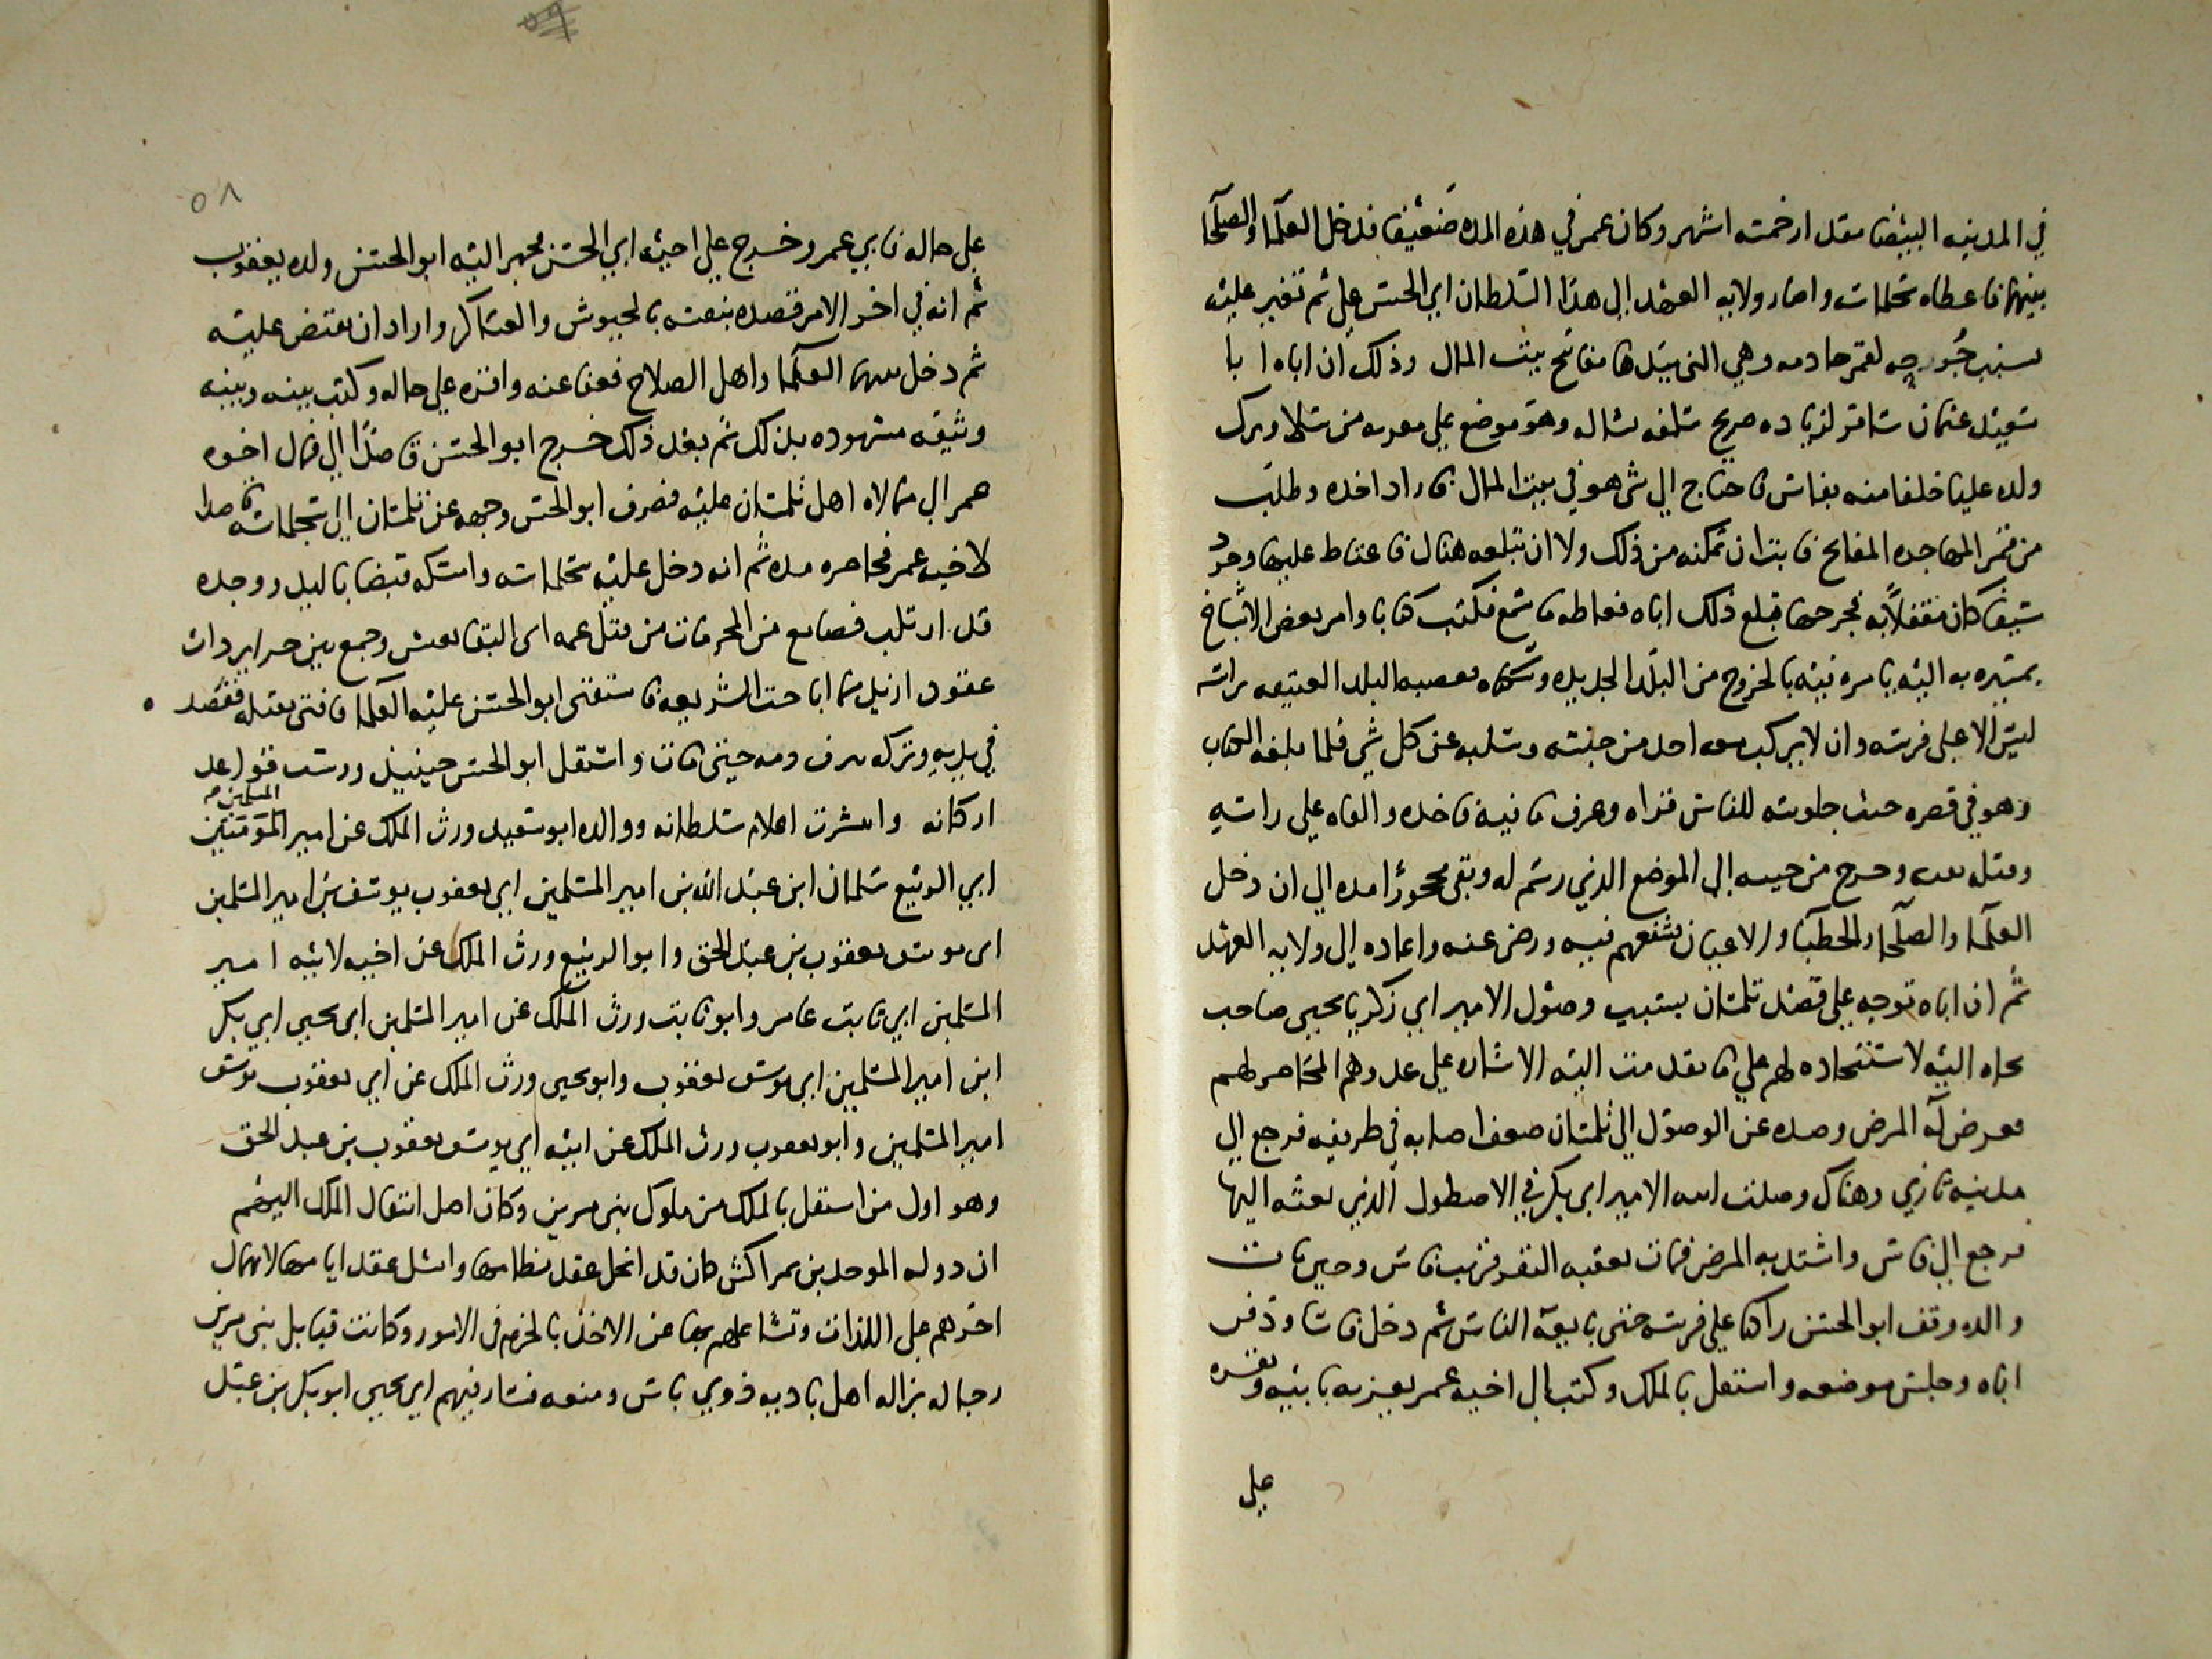 في المدينه البيضا مقدار خمسه اشهر وكان عمر في هذه المده ضعيفا فدخل العلما والصلحا
بينهما فاعطاه سجلماسه واصار ولايه العهد الى هذا السلطان ابي الحسن علي ثم تغير عليه
بسبب لقمر خادمه وهي التي بيدها مفاتح بيت المال وذلك ان اباه ابا
سعيد عثمان سافر لزياده ضريح سلفه بشاله وهو موضع علي مقربه من سلا وترك
ولده عليا خلفا منه بفاس فاحتاج الى شي هو في بيت المال فاراد اخذه وطلب
من قمر المفاتح فابت ان تمكنه من ذلك ولا ان تبلعه هنالك فاغتاظ عليها وجرد
سيفا كان متقلدا به فجرحها فبلغ ذلك اباه فكتب كتابا وامر بعض الاشياخ
بمسيره به اليه يامره فيه بالخروج من البلد الجديده وسكناه بقصبه البلد العتيقه براسه
ليس الا على فرسه وان لا يركب معه احد من جيشه وسلبه عن كل شي فلما بلغه الكتاب
وهو في قصره حيث جلوسه للناس قراه وعرف ما فيه فاخذه والقاه علي راسه
وقبله بعده وخرج من حينه الى الموضع الذي رسم له وبقي محجورا مده الى ان دخل
العلما والصلحا والخطبا والاعيان فشفعهم فيه ورضي عنه واعاده الى ولايه العهد
ثم ان اباه توجه على قصد تلمسان بسبب وصول الامير ابي زكريا يحيى صاحب
بجايه اليه لاستنجاده لهم علي ما تقدمت اليه الاشاره علي عدوهم المحاصر لهم
فعرض له المرض وصده عن الوصول الى تلمسان ضعف اصابه في طريقه فرجع الى
مدينه تازي وهناك وصلت ابنه الامير ابي بكر في الاصطول الذي بعثه اليها
فرجع الى فاس واشتد به المرض فمات بعقبه البقر قرب فاس وحين مات
والده وقف ابو الحسن راكبا على فرسه حتى بايعه الناس ثم دخل فاسا ودفن
اباه وجلس موضعه واستقل بالملك وكتب الى اخيه عمر يعزيه بابيه وتقره
علي
٥٨
علي حاله فابي عمر وخرج علي اخيه ابي الحسن فجهز اليه ابو الحسن ولده يعقوب
ثم انه في اخر الامر قصده بنفسه بالجيوش والعساكر واراد ان يقبض عليه
ثم دخل بينهما العلما واهل الصلاح فعفا عنه واقره علي حاله وكتب بينه وبينه
وثيقه مشهوده بذلك ثم بعد ذلك خرج ابو الحسن قاصدا الى قتال اخوه
عمر الى تلمسان عليه فصرف ابو الحسن وجهه عن تلمسان الى سجلماسه قاصدا
لاخيه عمر فحاصره مده ثم انه دخل عليه سجلماسه وامسكه قبضا باليد ووجده
قد ارتكب فضايع من المحرمات من قتل عمه ابي البقا يعيش وجمع بين حراير ذوات
عقول ازيل بها اباحت الشريعه فاستفتى ابو الحسن عليه العلما فافتي بقتله ففصد
في يديه وترك ينزف دمه حتى مات واستقل ابو الحسن حينيذ ورست قواعد
اركانه وانتشرت اعلام سلطانه ووالده ابو سعيد ورث الملك عن امير المؤمنين المسلمين
ابي الربيع سلمان ابن عبد الله بن امير المسلمين ابي يعقوب يوسف بن امير المسلمين
ابي يوسف يعقوب بن عبد الحق وابو الربيع ورث الملك عن اخيه لابيه امير
المسلمين ابي ثابت عامر وابو ثابت ورث الملك عن امير المسلمين ابي يحيى ابي بكر
ابن امير المسلمين ابي يوسف يعقوب وابو يحيى ورث الملك عن ابي يعقوب يوسف
امير المسلمين وابو يعقوب ورث الملك عن ابيه ابي يوسف يعقوب بن عبد الحق
وهو اول من استقل بالملك من ملوك بني مرين وكان اصل انتقال الملك اليهم
ان دوله الموحدين بمراكش كان قد انحل عقد نظامها وانسل عقد ايامها لانهماك
اخرهم على اللذات وتشاغلهم بها عن الاخذ بالحزم في الامور وكانت قبايل بني مرين
رجاله نزاله اهل باديه ذوي باس ومنعه فسار فيهم ابي يحيى ابو بكر بن عبد